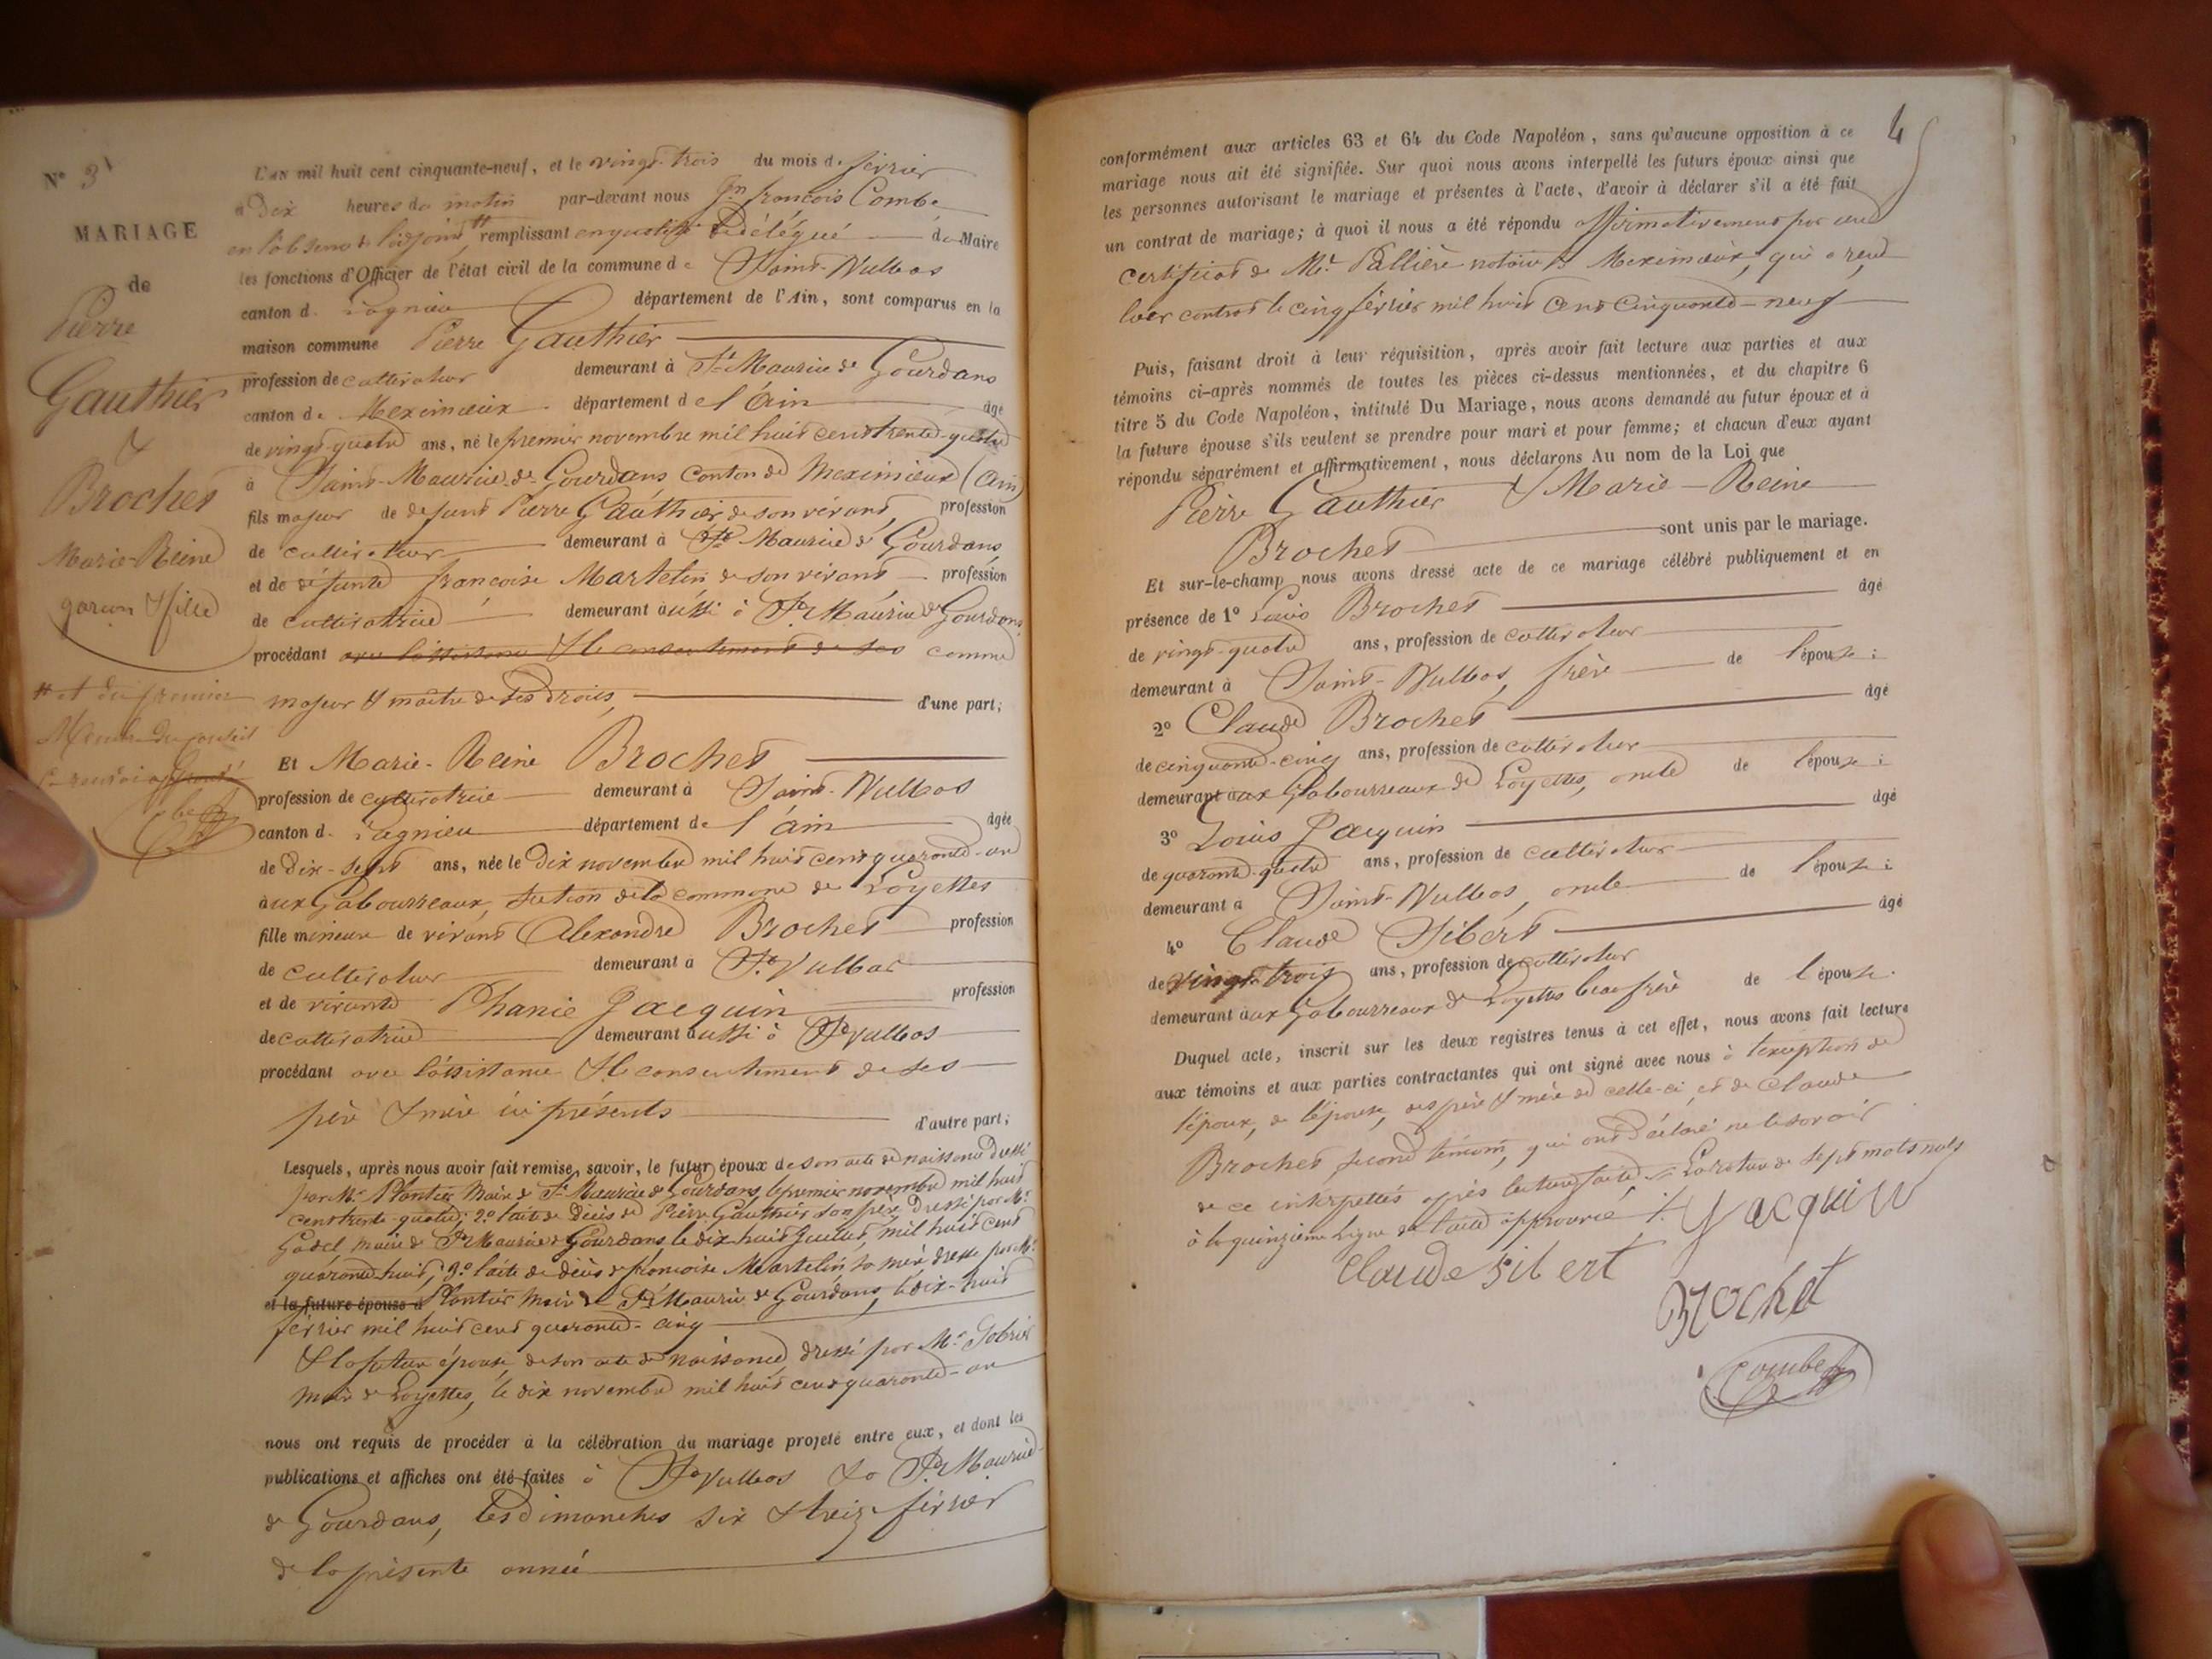 N° 3
MARIAGE
de
Pierre
Gauthier
&
Brochet
Marie-Reine
garçon & fille
et du premier
Membre du conseil
L'AN mil huit cent cinquante-neuf, et le vingt-trois du mois de février
à Dix heures du matin par-devant nous Jn François Combe
en l'absence de l'adjoint remplissant en qualité de Délégué du Maire
les fonctions d'Officier de l'état civil de la commune de Saint-Vulbas
canton de Lagnieu département de l'Ain, sont comparus en la
maison commune Pierre Gauthier
profession de cultivateur demeurant à St Maurice de Gourdans
canton de Meximieux département de l'Ain âgé
de vingt-quatre ans, né le premier novembre mil huit cent trente-quatre
à Saint-Maurice-de-Gourdans canton de Meximieux (Ain)
fils majeur de defunt Pierre Gauthier de son vivant, profession
de cultivateur demeurant à St Maurice de Gourdans
et de défunte françoise Martelin de son vivant profession
de cultivatrice demeurant aussi à St Maurice de Gourdans
procédant avec l'assistance & le consentement de ses comme
majeur & maître de ses Droits, d'une part;
Et Marie-Reine Brochet
profession de cultivatrice demeurant à Saint-Vulbas
canton de Lagnieu département de l'ain âgée
de Dix-sept ans, née le Dix novembre mil huit cent quarante-un
aux Gabourreaux, section de la commune de Loyettes
fille mineure de vivant Alexandre Brochet profession
de cultivateur demeurant à St Vulbas
et de vivante Phanie Jacquin profession
de cultivatrice demeurant aussi à St Vulbas
procédant avec l'assistance & le consentement de ses
père & mère ici présents d'autre part;
Lesquels, après nous avoir fait remise, savoir, le futur époux de son acte de naissance dressé
par Mr Plantier Maire de St Maurice de Gourdans, le premier novembre mil huit
cent trente-quatre; 2° l'acte de Décès de Pierre Gauthier son père, Dressé par Mr
maire de St Maurice de Gourdans, le dix-huit Juillet, mil huit cent
quarante-huit; 3° l'acte de décès de françoise Martelin sa mère dressé par Mr
et la future épouse d Plantier Maire de St Maurice de Gourdans, le dix-huit
février mil huit cent quarante-cinq
& la future épouse, de son acte de naissance, dressé par Mr
Maire de Loyettes, le dix novembre mil huit cent quarante-un
nous ont requis de procéder à la célébration du mariage projeté entre eux, et dont les
publications et affiches ont été faites à St Vulbas & à St Maurice
de Gourdans, les Dimanches six & treize février
de la présente année
4
conformément aux articles 63 et 64 du Code Napoléon, sans qu'aucune opposition à ce
mariage nous ait été signifiée. Sur quoi nous avons interpellé les futurs époux ainsi que
les personnes autorisant le mariage et présentes à l'acte, d'avoir à déclarer s'il a été fait
un contrat de mariage; à quoi il nous a été répondu affirmativement par un
certificat de Mr Pallière notaire à Meximieux, qui a reçu
leur contrat le cinq février mil huit cent cinquante-neuf
Puis, faisant droit à leur réquisition, après avoir fait lecture aux parties et aux
témoins ci-après nommés de toutes les pièces ci-dessus mentionnées, et du chapitre 6
titre 5 du Code Napoléon, intitulé Du Mariage, nous avons demandé au futur époux et à
la future épouse s'ils veulent se prendre pour mari et pour femme; et chacun d'eux ayant
répondu séparément et affirmativement, nous déclarons Au nom de la Loi que
Pierre Gauthier & Marie-Reine
Brochet sont unis par le mariage.
Et sur-le-champ nous avons dressé acte de ce mariage célébré publiquement et en
présence de 1° Louis Brochet âgé
de vingt-quatre ans, profession de cultivateur
demeurant à Saint-Vulbas, frère de l'épouse;
2° Claude Brochet âgé
de cinquante-cinq ans, profession de cultivateur
demeurant aux Gabourreaux de Loyettes, oncle de l'épouse;
3° Louis Jacquin âgé
de quarante-quatre ans, profession de cultivateur
demeurant à Saint-Vulbas, oncle de l'épouse;
4° Claude Sibert âgé
de vingt-trois ans, profession de cultivateur
demeurant aux Gabourreaux de Loyettes beau frère de l'épouse.
Duquel acte, inscrit sur les deux registres tenus à cet effet, nous avons fait lecture
aux témoins et aux parties contractantes qui ont signé avec nous à l'exception de
l'époux, de l'épouse, des père & mère de celle-ci, et de Claude
Brochet second témoin, qui ont déclaré ne le savoir
de ce interpellés après lecture faite. La rature de sept mots nuls
à la quinzième ligne de l'acte approuvée
Jacquin
Claude Sibert
Brochet
Combe